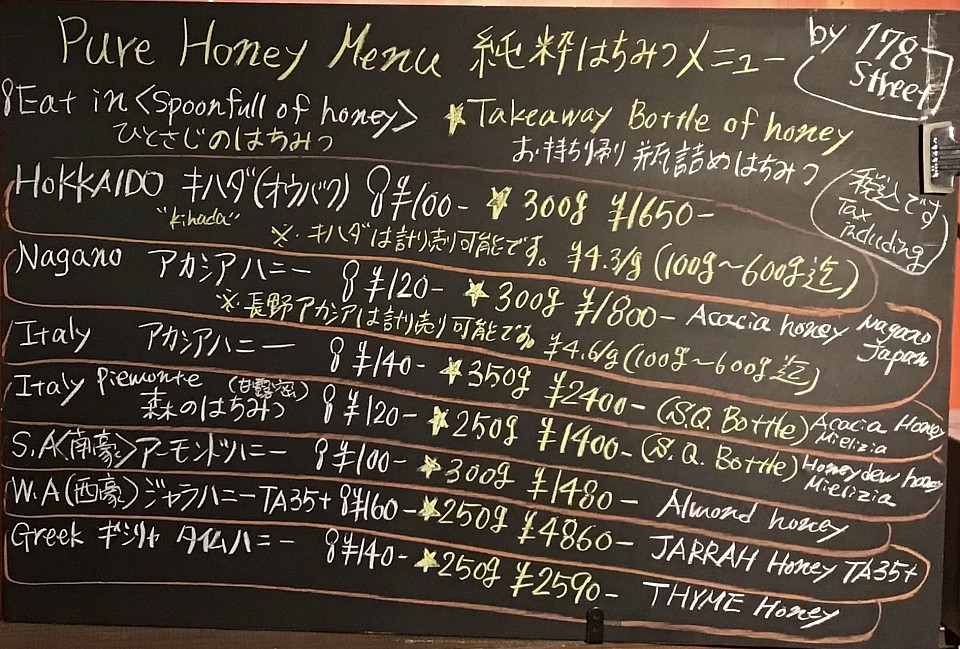 Pure Honey Menu 純粋はちみつメニュー
by 178 Street
Eat in <Spoonfull of honey> ★Takeaway Bottle of honey
ひとさじのはちみつ お持ち帰り 瓶詰めはちみつ
税込です Tax including
HOKKAIDO キハダ(オウバク) ¥100- ★ 300g ¥1650-
"kihada" ※・キハダは計り売り可能です。 ¥4.3/g (100g~600g迄)
Nagano アカシアハニー ¥120- ★300g ¥1800- Acacia honey Nagano Japan
※・長野アカシアは計り売り可能です。 ¥4.6/g (100g~600g迄)
Italy アカシアハニー ¥140- ★350g ¥2400- (S.Q. Bottle) Acacia Honey Mielizia
Italy Piemonte (甘露蜜) 森のはちみつ ¥120- ★250g ¥1400- (S.Q. Bottle) Honeydew honey Mielizia
S.A<南豪>アーモンドハニー ¥100- ★300g ¥1480- Almond honey
W.A(西豪)ジャラハニーTA35+ ¥160- ★250g ¥4860- JARRAH Honey TA35+
Greek ギリシャ タイムハニー ¥140- ★250g ¥2590- THYME Honey